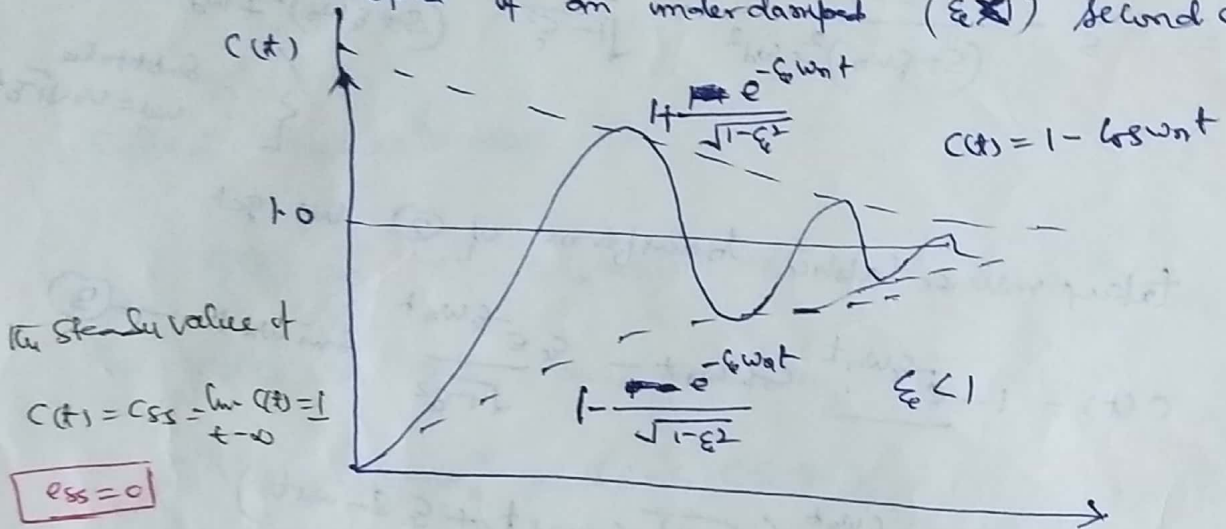 of an underdamped (ξ<1) second
C(t)
1+ e^{-ξωnt} / √1-ξ²
C(t) = 1 - cos ωnt
1.0
steady value of
C(t) = Css = lim C(t) = 1
t→∞
1- e^{-ξωnt} / √1-ξ²
ξ < 1
ess = 0